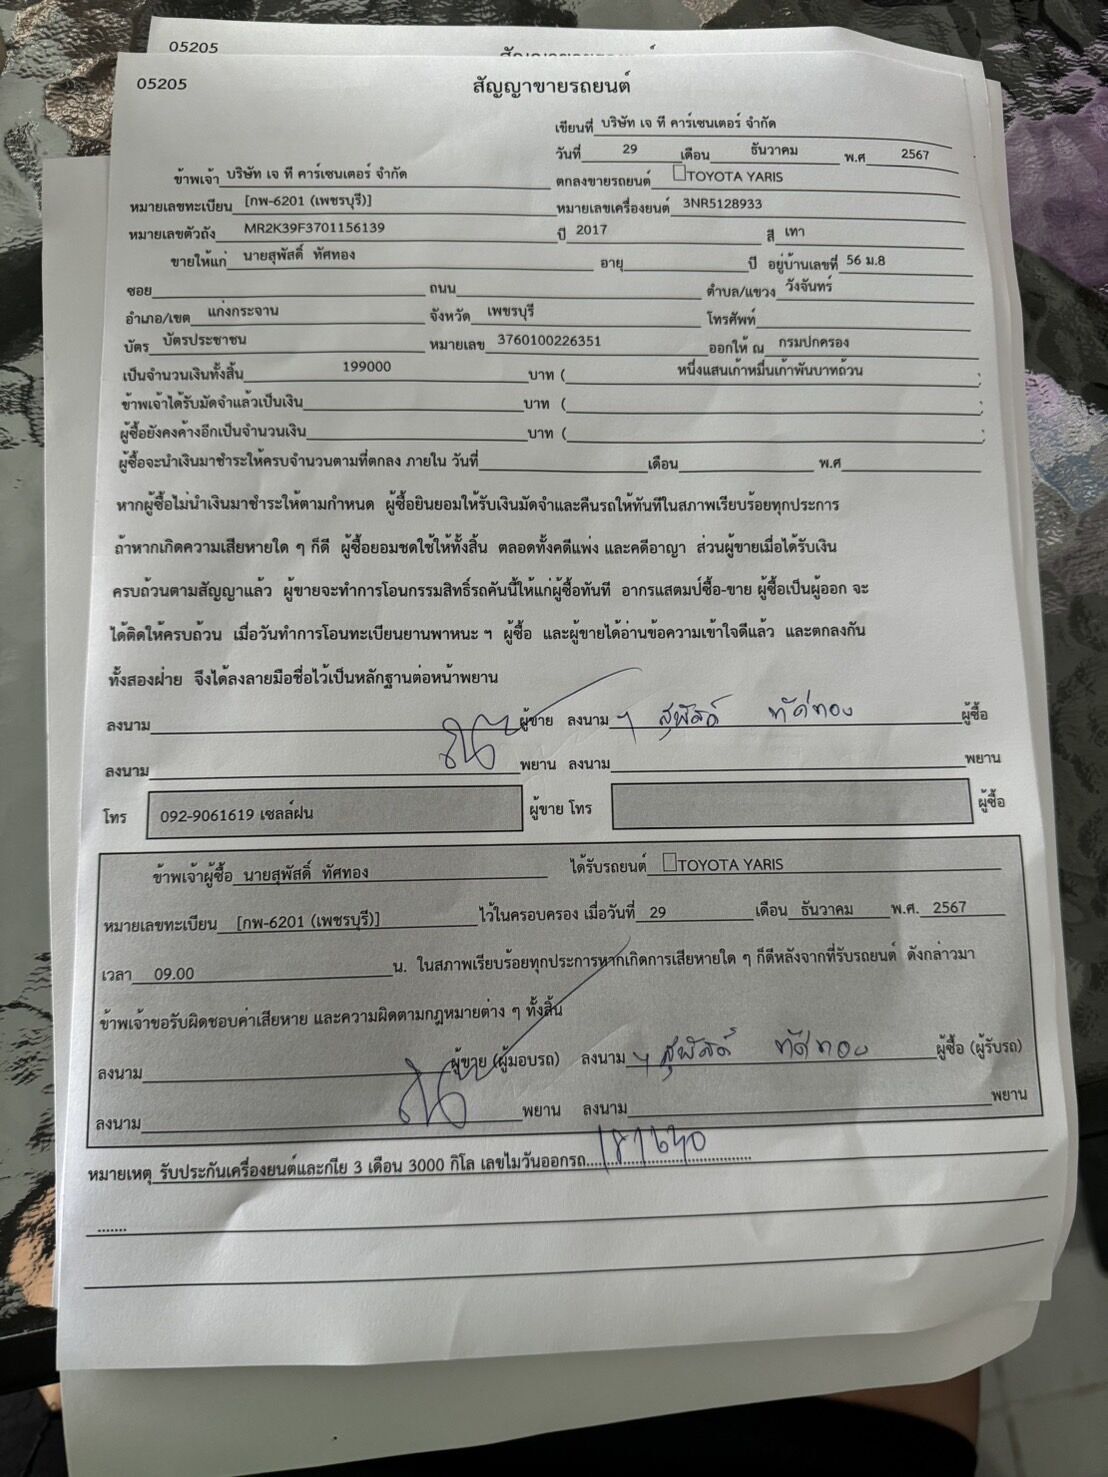 05205
05205 สัญญาขายรถยนต์
เขียนที่ บริษัท เจ ที คาร์เซนเตอร์ จำกัด
วันที่ 29 เดือน ธันวาคม พ.ศ 2567
ข้าพเจ้า บริษัท เจ ที คาร์เซนเตอร์ จำกัด ตกลงขายรถยนต์ TOYOTA YARIS
หมายเลขทะเบียน [กพ-6201 (เพชรบุรี)] หมายเลขเครื่องยนต์ 3NR5128933
หมายเลขตัวถัง MR2K39F3701156139 ปี 2017 สี เทา
ขายให้แก่ นายสุพัสดิ์ ทัศทอง อายุ ปี อยู่บ้านเลขที่ 56 ม.8
ซอย ถนน ตำบล/แขวง วังจันทร์
อำเภอ/เขต แก่งกระจาน จังหวัด เพชรบุรี โทรศัพท์
บัตร บัตรประชาชน หมายเลข 3760100226351 ออกให้ ณ กรมปกครอง
เป็นจำนวนเงินทั้งสิ้น 199000 บาท ( หนึ่งแสนเก้าหมื่นเก้าพันบาทถ้วน )
ข้าพเจ้าได้รับมัดจำแล้วเป็นเงิน บาท ( )
ผู้ซื้อยังคงค้างอีกเป็นจำนวนเงิน บาท ( )
ผู้ซื้อจะนำเงินมาชำระให้ครบจำนวนตามที่ตกลง ภายใน วันที่ เดือน พ.ศ
หากผู้ซื้อไม่นำเงินมาชำระให้ตามกำหนด ผู้ซื้อยินยอมให้รับเงินมัดจำและคืนรถให้ทันทีในสภาพเรียบร้อยทุกประการ
ถ้าหากเกิดความเสียหายใด ๆ ก็ดี ผู้ซื้อยอมชดใช้ให้ทั้งสิ้น ตลอดทั้งคดีแพ่ง และคดีอาญา ส่วนผู้ขายเมื่อได้รับเงิน
ครบถ้วนตามสัญญาแล้ว ผู้ขายจะทำการโอนกรรมสิทธิ์รถคันนี้ให้แก่ผู้ซื้อทันที อากรแสตมป์ซื้อ-ขาย ผู้ซื้อเป็นผู้ออก จะ
ได้ติดให้ครบถ้วน เมื่อวันทำการโอนทะเบียนยานพาหนะ ฯ ผู้ซื้อ และผู้ขายได้อ่านข้อความเข้าใจดีแล้ว และตกลงกัน
ทั้งสองฝ่าย จึงได้ลงลายมือชื่อไว้เป็นหลักฐานต่อหน้าพยาน
ลงนาม ผู้ขาย ลงนาม สุพัสดิ์ ทัศทอง ผู้ซื้อ
ลงนาม พยาน ลงนาม พยาน
โทร 092-9061619 เซลล์ฝน ผู้ขาย โทร ผู้ซื้อ
ข้าพเจ้าผู้ซื้อ นายสุพัสดิ์ ทัศทอง ได้รับรถยนต์ TOYOTA YARIS
หมายเลขทะเบียน [กพ-6201 (เพชรบุรี)] ไว้ในครอบครอง เมื่อวันที่ 29 เดือน ธันวาคม พ.ศ. 2567
เวลา 09.00 น. ในสภาพเรียบร้อยทุกประการหากเกิดการเสียหายใด ๆ ก็ดีหลังจากที่รับรถยนต์ ดังกล่าวมา
ข้าพเจ้าขอรับผิดชอบค่าเสียหาย และความผิดตามกฎหมายต่าง ๆ ทั้งสิ้น
ลงนาม ผู้ขาย (ผู้มอบรถ) ลงนาม สุพัสดิ์ ทัศทอง ผู้ซื้อ (ผู้รับรถ)
ลงนาม พยาน ลงนาม พยาน
หมายเหตุ รับประกันเครื่องยนต์และกเีย 3 เดือน 3000 กิโล เลขไมวันออกรถ..............................
.......